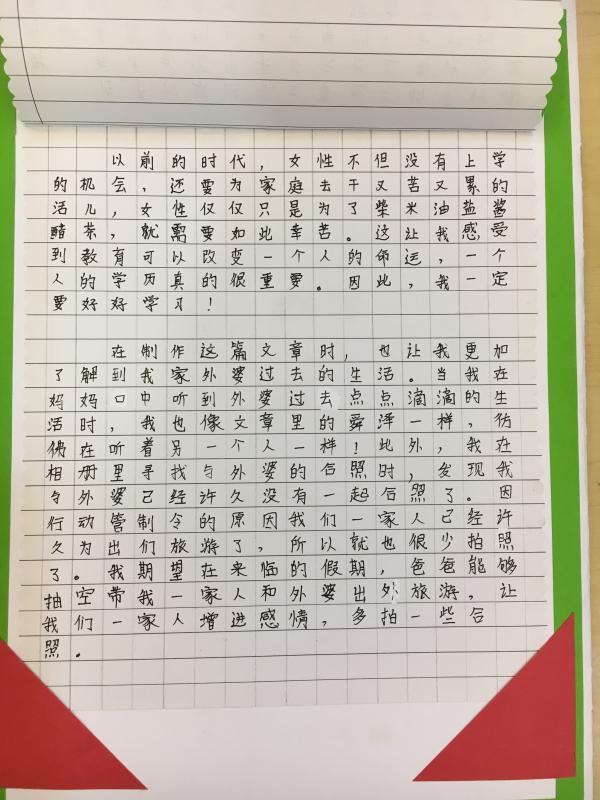 以前的时代，女性不但没有上学
的机会，还要为家庭去干又苦又累的
活儿，女性仅仅只是为了柴米油盐酱
醋茶，就需要如此辛苦。这让我感受
到教育可以改变一个人的命运，一个
人的学历真的很重要。因此，我一定
要好好学习！
在制作这篇文章时，也让我更加
了解到我家外婆过去的生活。当我在
妈妈口中听到外婆过去点点滴滴的生
活时，我也像文章里的舜泽一样，仿
佛在听着另一个人一样！此外，我在
相册里寻找与外婆的合照时，发现我
与外婆已经许久没有一起合照了。因
行动管制令的原因我们一家人已经许
久为出们旅游了，所以就也很少拍照
了。我期望在来临的假期，爸爸能够
抽空带我一家人和外婆出外旅游，让
我们一家人增进感情，多拍一些合
照。